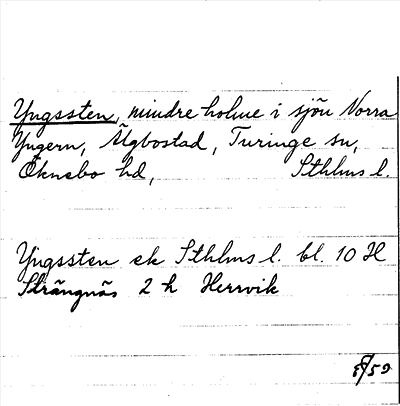 Yngssten, mindre holme i sjön Norra
Yngern, Älgbostad, Turinge sn,
Öknebo hd, Sthlms l.
Yngssten ek Sthlms l. bl. 10 H
Strängnäs 2 h Herrvik